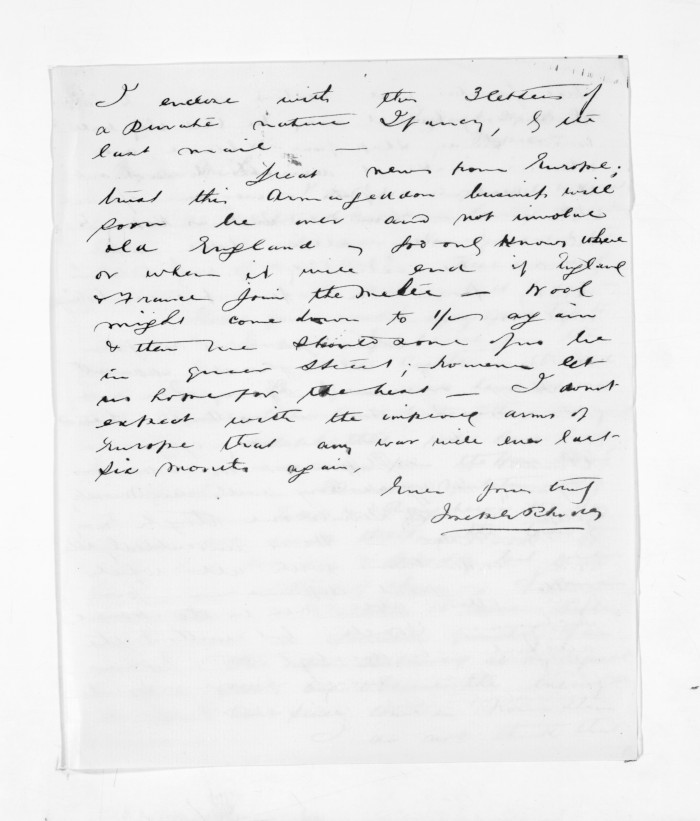 I enclose with this 3 letters of
a private nature I fancy, by the
last mail —
Great news from Europe;
trust this Armageddon business will
soon be over and not involve
old England — God only knows where
or when it will end if England
& France join the melee — Wool
might come down to 1/- again
& then we should some of us be
in queer street; however let
us hope for the best — I do not
expect with the improved arms of
Europe that any war will ever last
six months again.
Ever yours truly
Joseph Rhodes